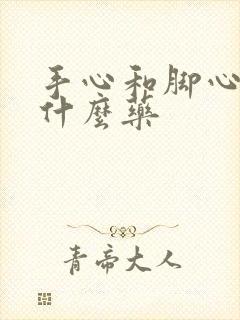 手心和脚心
什麼藥
青帝大人